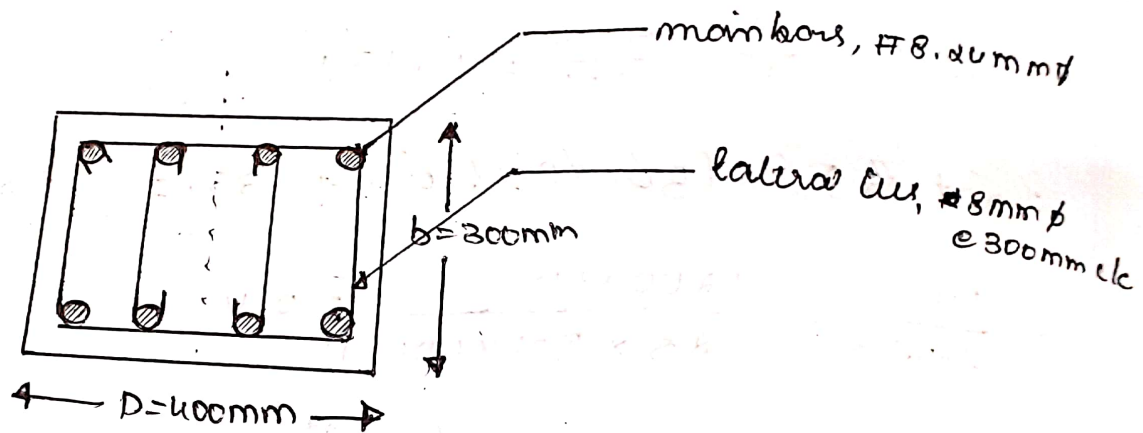 main bars, #8.24mmϕ
lateral ties, #8mmϕ
@ 300mm c/c
b=300mm
D=400mm